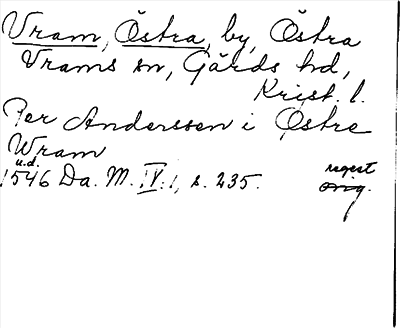 Vram, Östra, by, Östra
Vrams sn, Gärds hd,
Krist. l.
Per Anderssen i Østre
Wram
u.d.
1546 Da. M. IV: 1, s. 235. regest
orig.